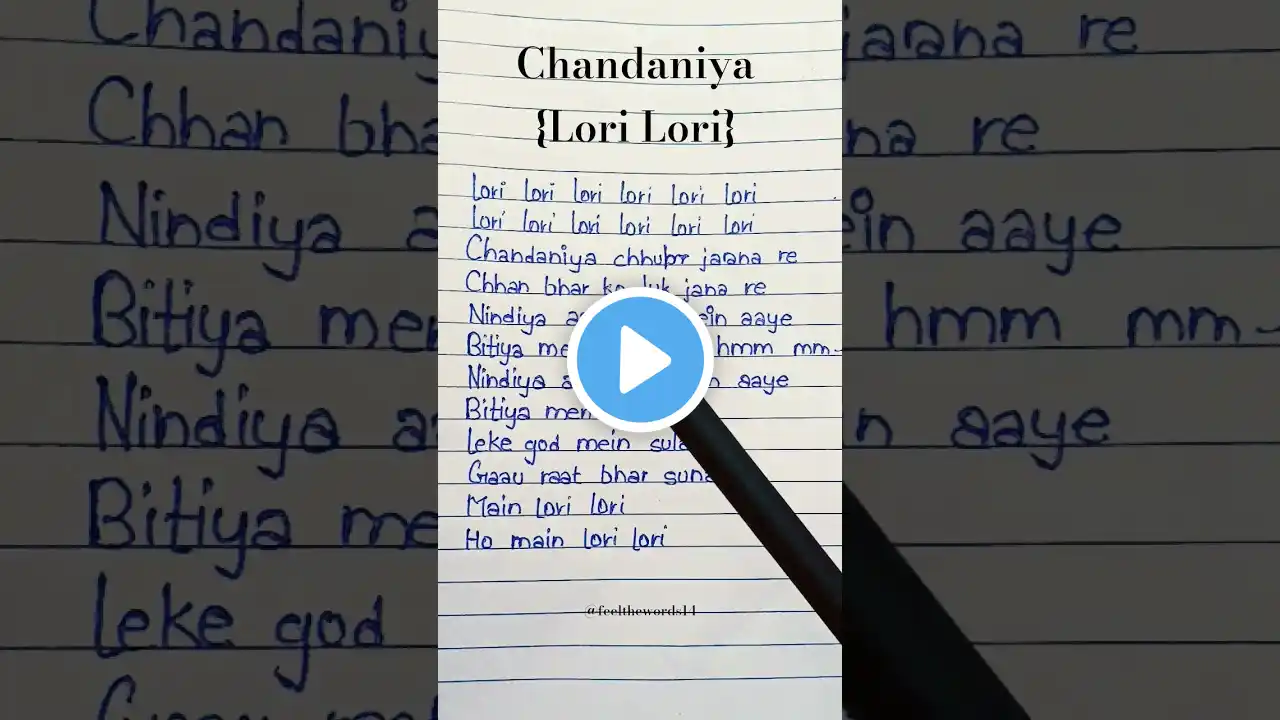 Chandaniya
{Lori Lori}
Lori lori lori lori lori lori
Lori lori lori lori lori lori
Chandaniya chhupr jaana re
Chhan bhar ko luk jana re
Nindiya ein aaye
Bitiya hmm mm-
Nindiya aaye
Bitiya
Leke god mein
Gaau raat bhar
Main lori lori
Ho main lori lori
@feelthewords14